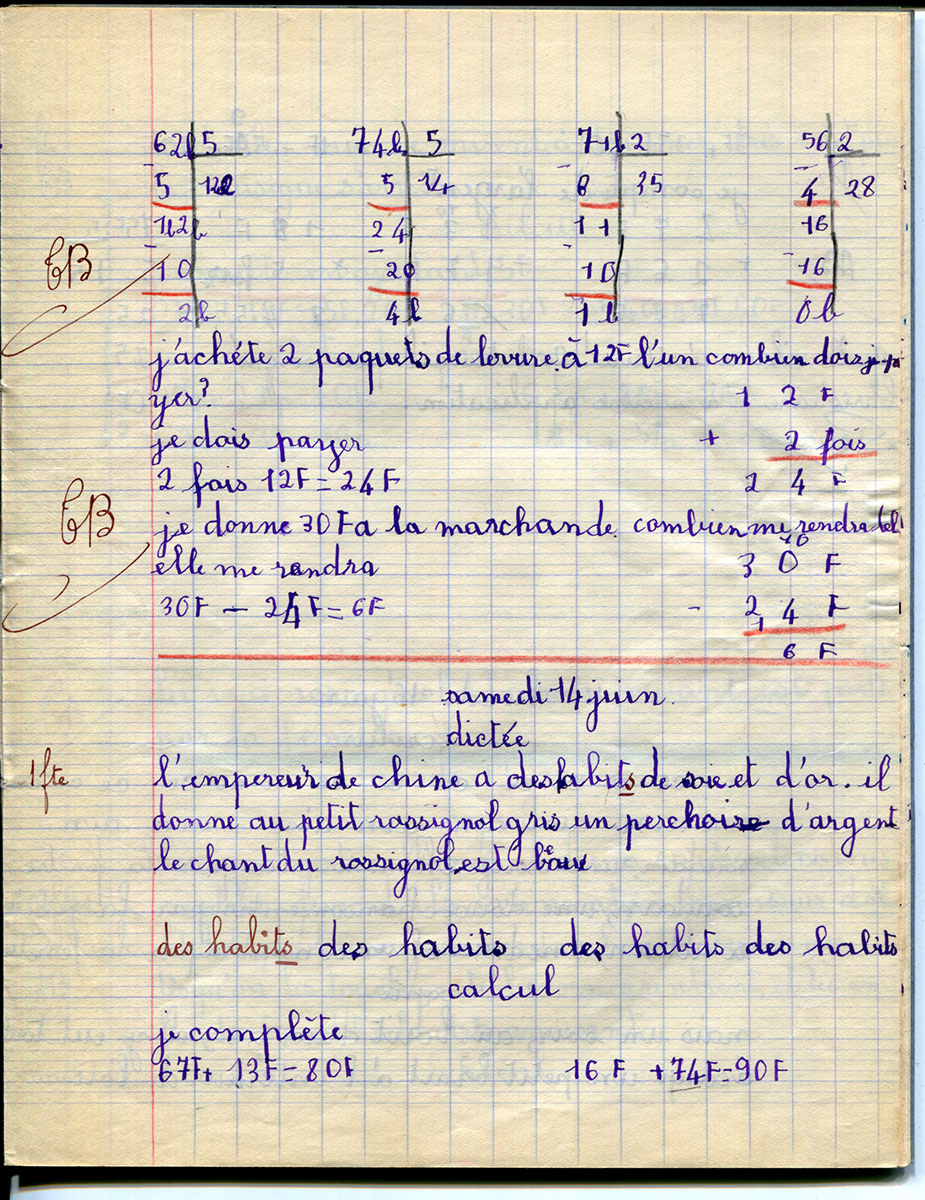 62b 5 74b 5 71b 2 56 2
- 5 12b 5 14 - 6 35 - 4 28
12b 24 11 16
- 10 - 20 - 10 - 16
2b 4b 1b 0b
TB
j'achéte 2 paquets de levure à 12F l'un combien dois je pa
yer? 1 2 F
je dois payer + 2 fois
2 fois 12F = 24F 2 4 F
TB
je donne 30F a la marchande. combien me rendra
elle me rendra 3 10 0 F
30F - 24F = 6F - 2 1 4 F
6 F
samedi 14 juin.
dictée
1 fte l'empereur de chine a des habits de soie et d'or. il
donne au petit rossignol gris un perchoir d'argent
le chant du rossignol est beau
des habits des habits des habits des habits
calcul
je complète
67F + 13F = 80F 16 F + 74F = 90F